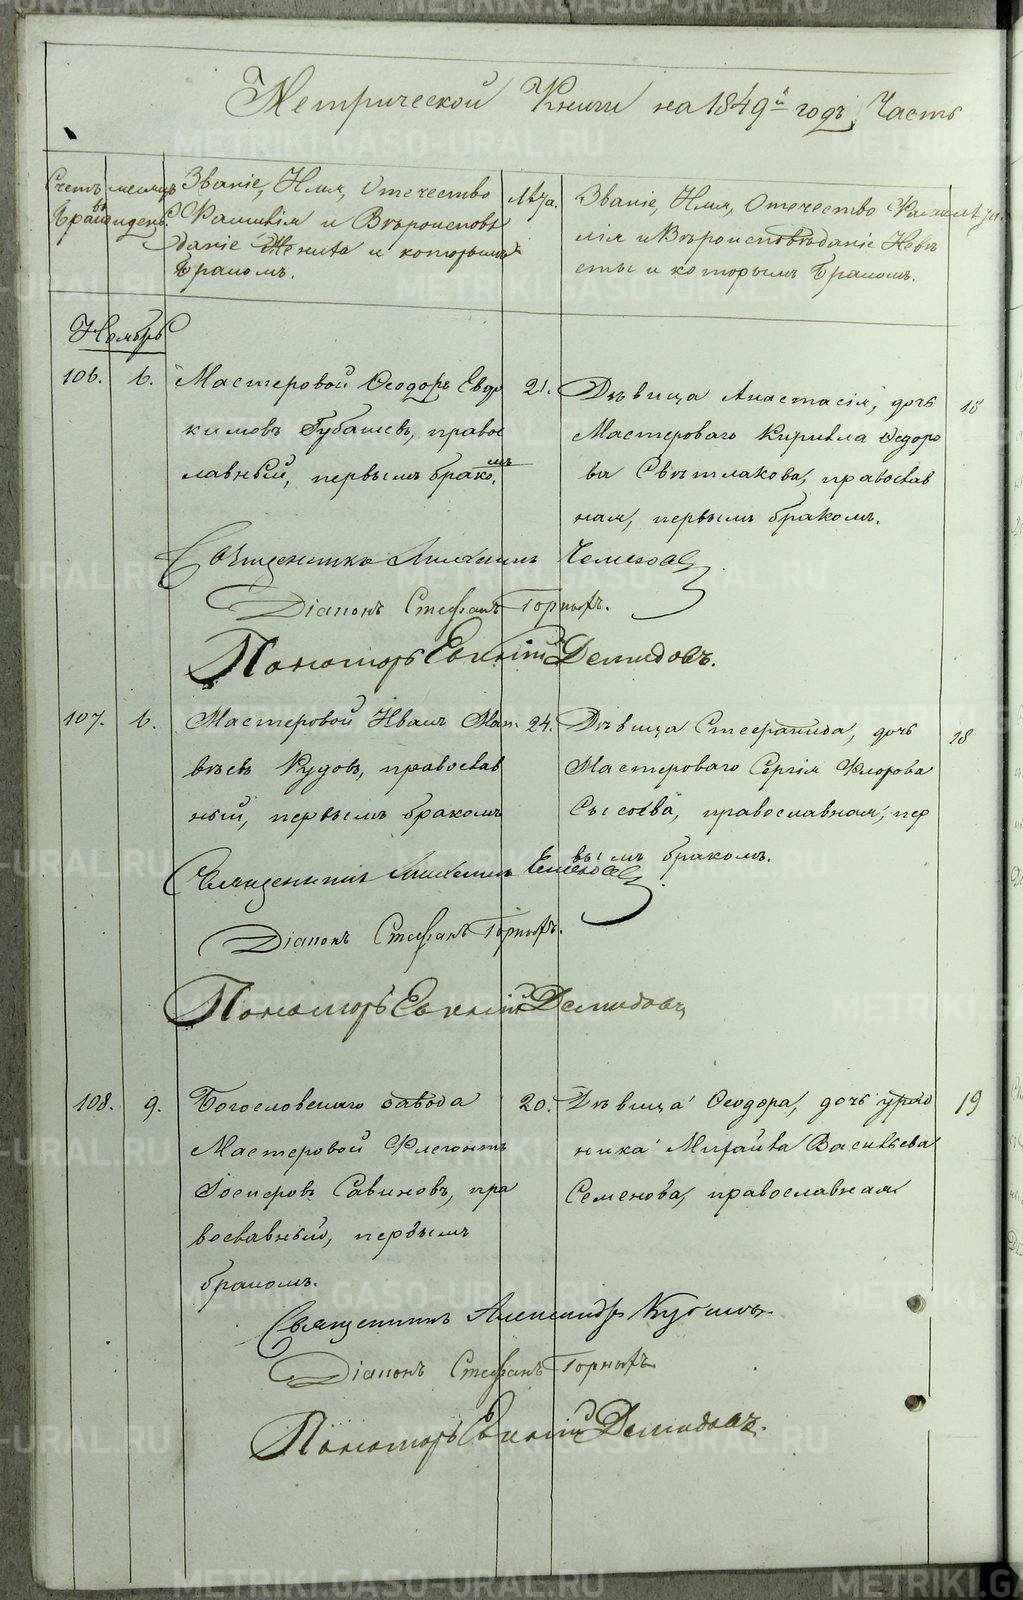 Метрической Книги на 1849й годъ, Часть
Счетъ браковъ
месяцъ и день.
Званіе, Имя, Отечество
Фамилія и Вѣроисповѣ
даніе Жениха и которымъ
бракомъ.
Лѣта.
Званіе, Имя, Отечество Фами
лія и Вѣроисповѣданіе Невѣ
сты и которымъ бракомъ.
Лѣта.
Ноябрь
106. 6. Мастеровой Ѳеодоръ Евдо
кимовъ Губашевъ, правос
лавный, первымъ бракомъ
21.
Дѣвица Анастасія, дочь
Мастероваго Кирилла Ѳедоро
ва Свѣтлакова, православ
ная, первымъ бракомъ.
18
Священникъ Михаилъ
Діаконъ Стефанъ Горныхъ.
Пономарь Евгеній Демидовъ.
107. 6. Мастеровой Иванъ Мат
вѣевъ Кудовъ, православ
ный, первымъ бракомъ
24.
Дѣвица Стефанида, дочь
Мастероваго Сергія Флорова
Сысоева, православная, пер
вымъ бракомъ.
18
Священникъ Михаилъ
Діаконъ Стефанъ Горныхъ.
Пономарь Евгеній Демидовъ
108. 9. Богословскаго завода
Мастеровой Флегонтъ
Іосифовъ Савиновъ, пра
вославный, первымъ
бракомъ.
20.
Дѣвица Ѳеодора, дочь уряд
ника Михаила Васильева
Семенова, православная
19
Священникъ Александръ
Діаконъ Стефанъ Горныхъ
Пономарь Евгеній Демидовъ.
METRIKI.GASO-URAL.RU